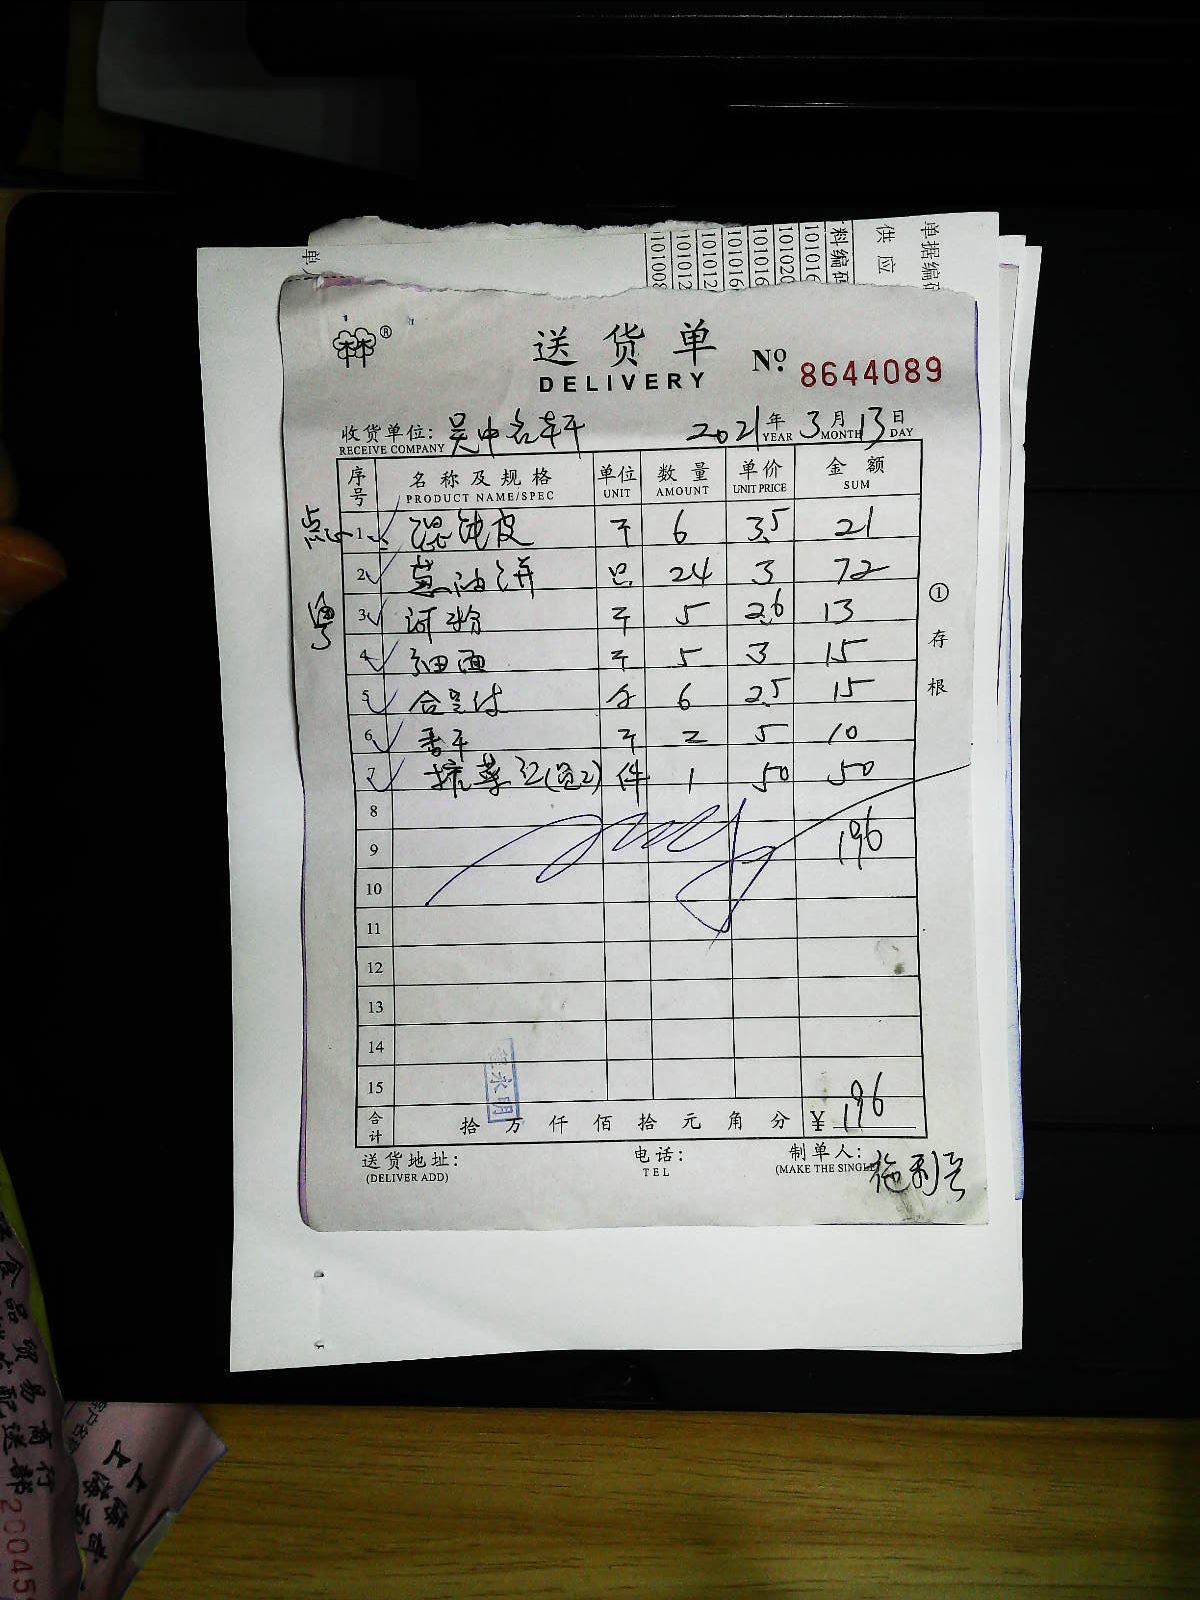 单据编码
供应
料编码
101016
101020
101016
101016
101012
101012
101008
林林®
送货单
DELIVERY
No. 8644089
收货单位: 吴中名轩 2021年3月13日
RECEIVE COMPANY YEAR MONTH DAY
序号 名称及规格 单位 数量 单价 金额
PRODUCT NAME/SPEC UNIT AMOUNT UNIT PRICE SUM
点心 1 混饨皮 斤 6 3.5 21
2 葱油饼 只 24 3 72
粤 3 河粉 斤 5 2.6 13
4 细面 斤 5 3 15
5 6 2.5 15
6 香干 斤 2 5 10
7 件 1 50 50
8
9 196
10
11
12
13
14
15
合计 拾万仟佰拾元角分 ¥196
①存根
送货地址: 电话: 制单人:
(DELIVER ADD) TEL (MAKE THE SINGLE
食品贸易商行
配送部
200045